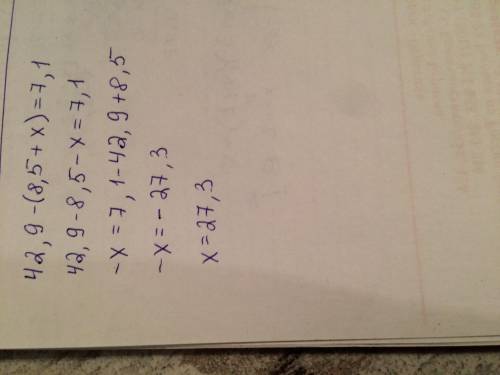 42,9-(8,5+x)=7,1
42,9-8,5-x=7,1
-x=7,1-42,9+8,5
-x=-27,3
x=27,3